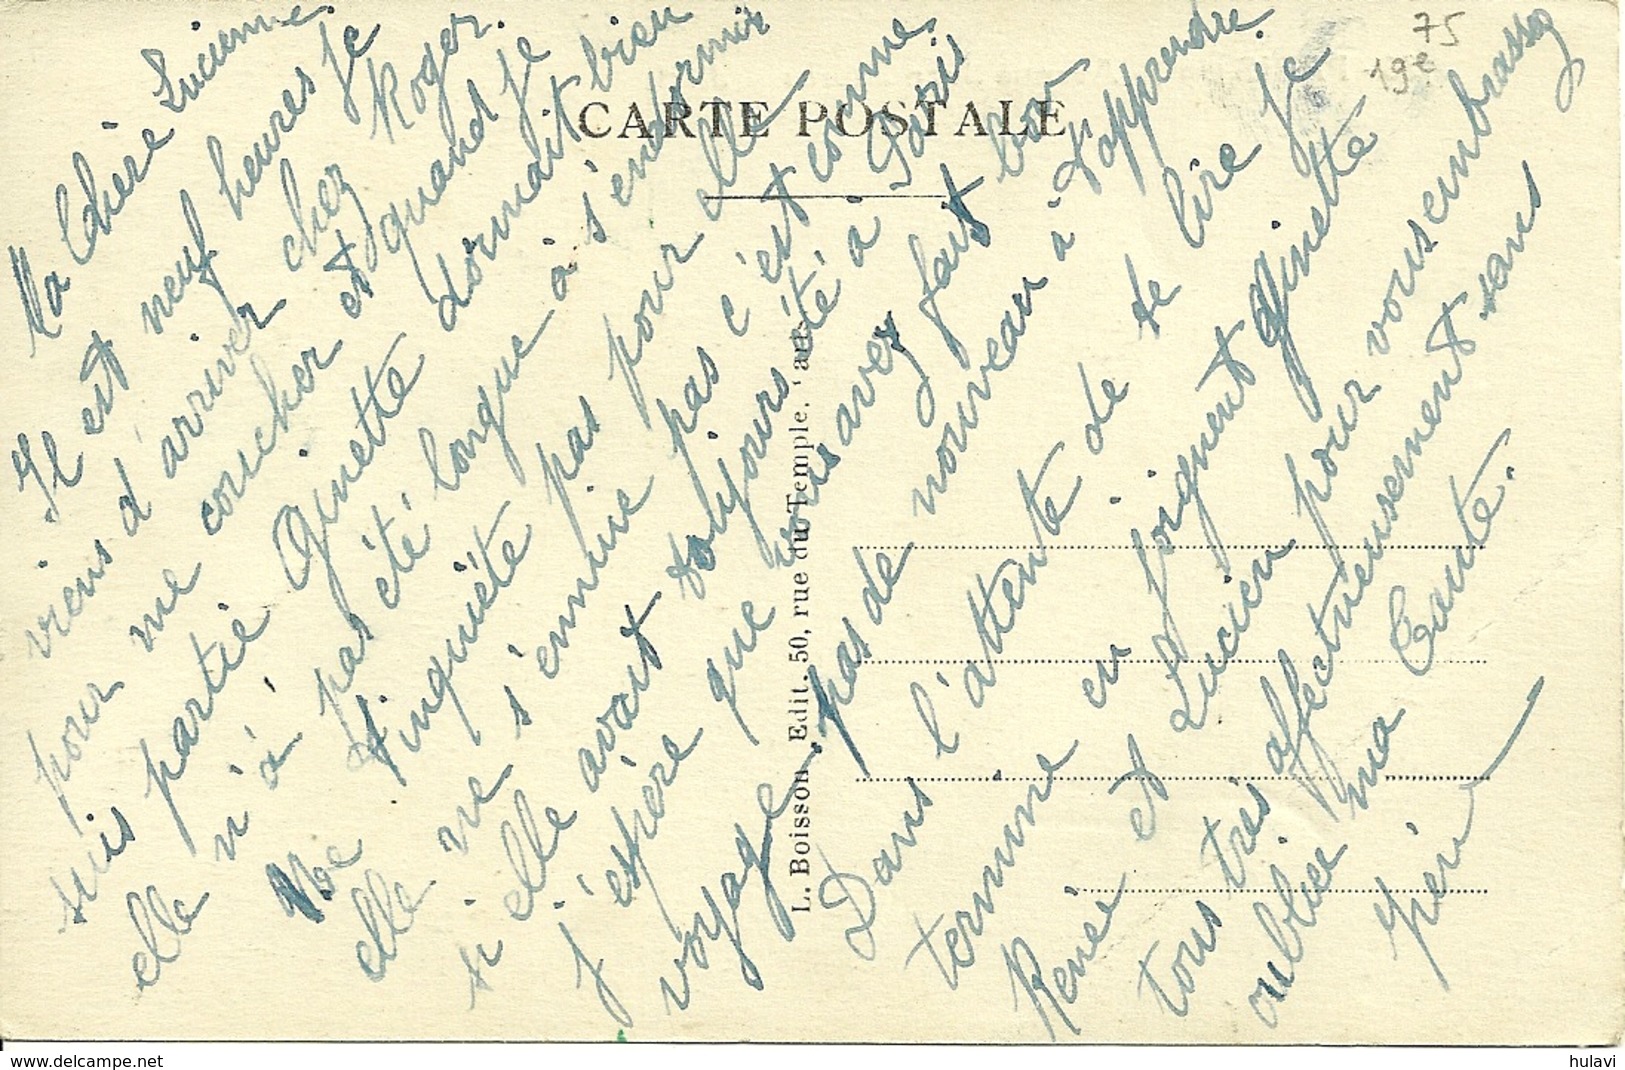 CARTE POSTALE
75
19e
Ma Chère Lucienne.
Il est neuf heures je
viens d'arriver chez Roger.
pour me coucher et quand je
suis partie Ginette dormait bien
elle n'à pas été longue à s'endormir
Ne t'inquiète pas pour elle
elle ne s'ennuie pas c'est comme
si elle avait toujours été à Paris
j'espère que vous avez fait bon
voyage pas de nouveau à t'apprendre.
Dans l'attente de te lire je
termine en joignent Ginette
René et Lucien pour vous embrassez
tous très affectueusement sans
oublier ma Tante.
L. Boisson. Edit. 50, rue du Temple.
hulavi
www.delcampe.net